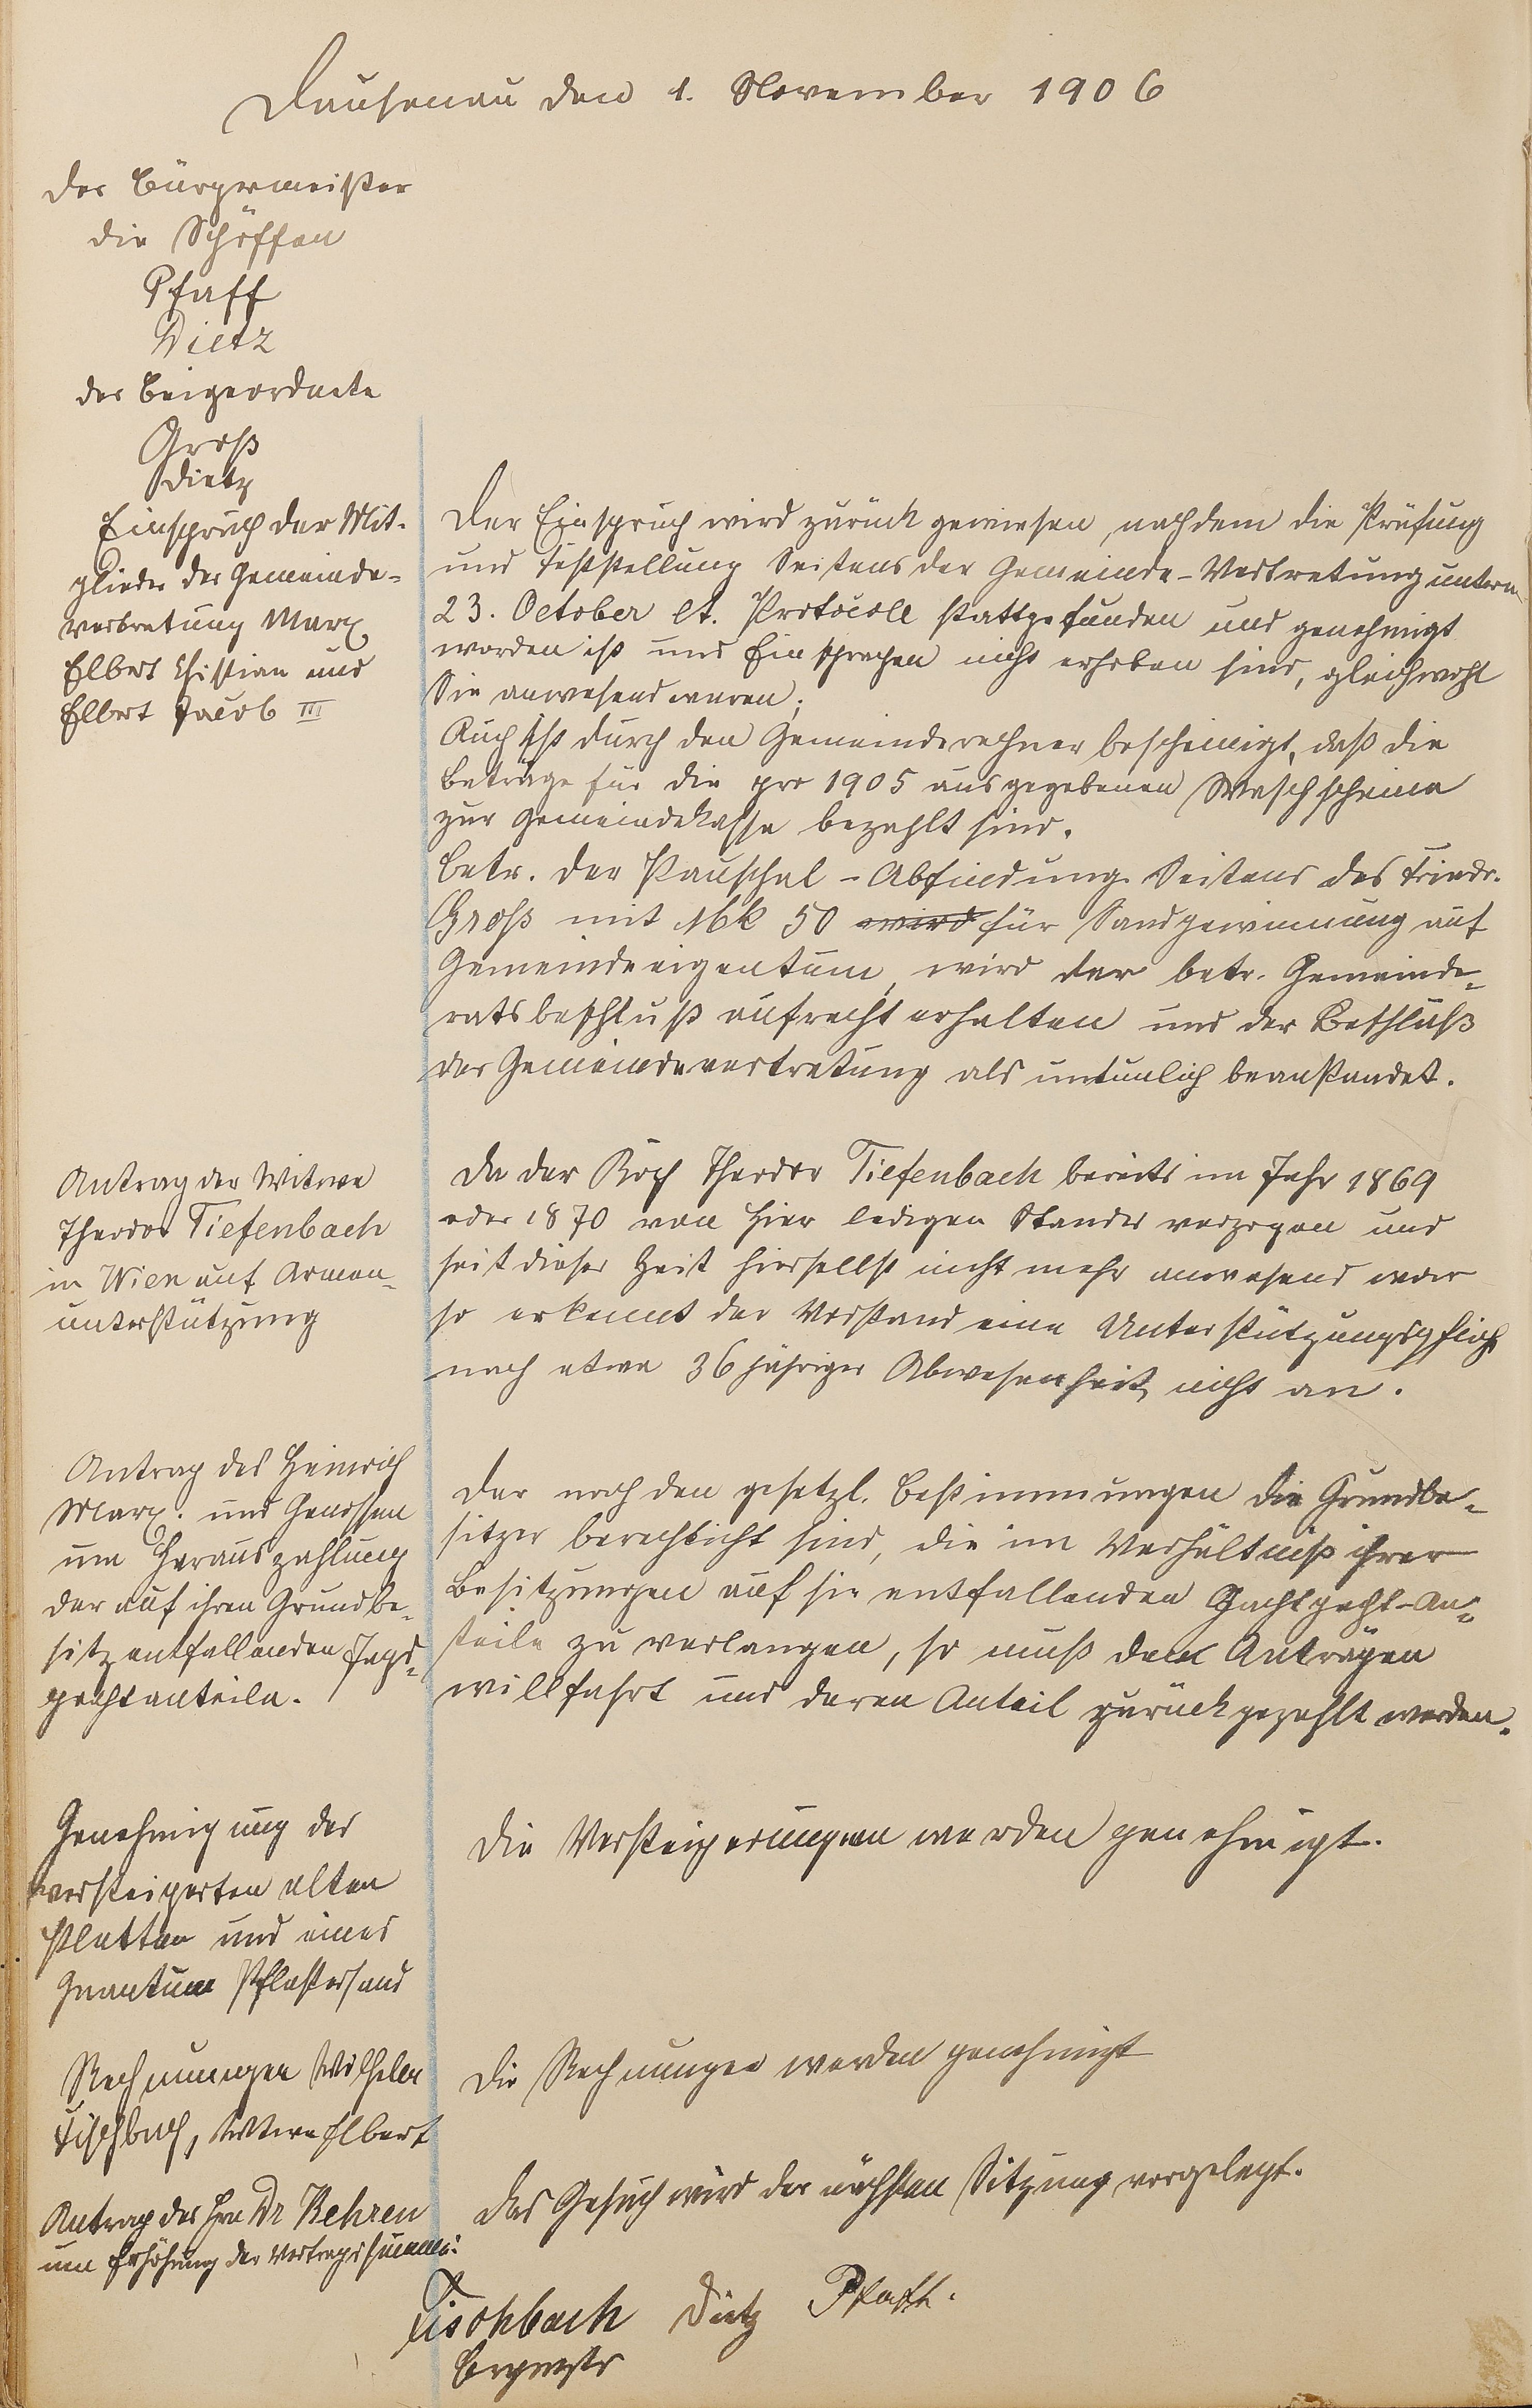 Dausenau den 1. November 1906
der Bürgermeister
die Schöffen
Pfaff
Dietz
der Beigeordnete
Groß
Dietz
Einspruch der Mit-
glieder der Gemeinde-
vertretung Marx,
Elbert Christian und
Elbert Jacob III
Der Einspruch wird zurück gewiesen, nachdem die Prüfung
und Feststellung Seitens der Gemeinde-Vertretung unterm
23. October lt. Protocoll stattgefunden und genehmigt
worden ist und Einsprachen nicht erhoben sind, gleichwohl
Sie anwesend waren.
Auch ist durch den Gemeinderechner bescheinigt, daß die
Beträge für die pro 1905 ausgegebenen Waschscheine
zur Gemeindekasse bezahlt sind.
betr. der Pauschal-Abfindung Seitens des Friedr.
Groß mit Mk 50 wird für Sandgewinnung auf
Gemeindeeigentum, wird der betr. Gemeinde-
ratsbeschluß aufrecht erhalten und der Beschluß
der Gemeindevertretung als untunlich beanstandet.
Antrag der Witwe
Theodor Tiefenbach
in Wien auf Armen-
unterstützung
Da der Koch Theodor Tiefenbach bereits im Jahr 1869
oder 1870 von hier ledigen Standes verzogen und
seit dieser Zeit hierselbst nicht mehr anwesend war
so erkennt der Vorstand eine Unterstützungspflicht
nach etwa 36 jähriger Abwesenheit nicht an.
Antrag des Heinrich
Marx. und Genossen
um Herauszahlung
der auf ihren Grundbe-
sitz entfallenden Jagd-
pachtanteile.
Der nach den gesetzl. Bestimmungen die Grundbe-
sitzer berechticht sind, die im Verhältniß ihrer
Besitzungen auf sie entfallenden Jachtpacht-An-
teile zu verlangen, so muß den Anträgen
willfahrt und deren Anteil zurückgezahlt werden.
Genehmigung der
versteigerten alten
Platten und eines
Quantum Pflastersand
Die Versteigerungen werden genehmigt.
Rechnungen Wilhelm
Fischbach, Witwe Elbert
Die Rechnungen werden genehmigt
Antrag des Hrn Dr Kehren
um Erhöhung der Vertragssumme:
Das Gesuch wird der nächsten Sitzung vorgelegt.
Fischbach Dietz Pfaff.
Brgmstr